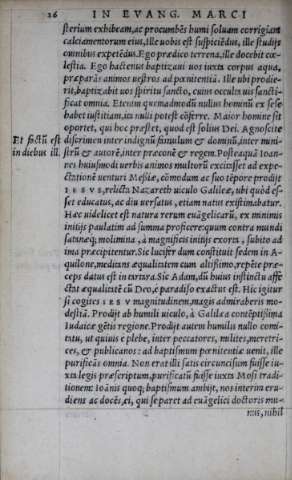 26 IN EVANG. MARCI
sterium exhibeam, ac procumbēs humi soluam corrigiam
calciamentorum eius, ille uobis est suspiciēdus, ille studijs
omnibus expetēdus. Ego prædico terrena, ille docebit cœ-
lestia. Ego hactenus baptizaui uos iuxta corpus aqua,
præparās animos uestros ad pœnitentiā. Ille ubi prodie-
rit, baptizabit uos spiritu sancto, cuius occulta uis sancti-
ficat omnia. Etenim quemadmodū nullus hominū ex sese
habet iustitiam, ita nulli potest cōferre. Maior homine sit
oportet, qui hoc præstet, quod est solius Dei. Agnoscite
Et factū est discrimen inter indignū famulum & dominū, inter mini-
in diebus ill. strū & autorē, inter præconē & regem. Posteaquā Ioan-
nes huiusmodi uerbis animos multorū excitasset ad expe-
ctationē uenturi Messiæ, cōmodum ac suo tēpore prodijt
IESVS, relicta Nazareth uiculo Galileæ, ubi quòd es-
set educatus, ac diu uersatus, etiam natus existimabatur.
Hæc uidelicet est natura rerum euāgelicarū, ex minimis
initijs paulatim ad summa proficere: quum contra mundi
satanæq́; molimina, à magnificis initijs exorta, subitò ad
ima præcipitentur. Sic lucifer dum constituit sedem in A-
quilone, meditans æqualitatem cum altissimo, repētè præ-
ceps datus est in tartara. Sic Adam, dū huius instinctu affe
ctat æqualitatē cū Deo, è paradiso exactus est. Hic igitur
si cogites IESV magnitudinem, magis admiraberis mo-
destiā. Prodijt ab humili uiculo, à Galilæa contēptissima
Iudaicæ gētis regione. Prodijt autem humilis nullo comi-
tatu, ut quiuis e plebe, inter peccatores, milites, meretri-
ces, & publicanos: ad baptismum pœnitentiæ uenit, ille
purificās omnia. Non erat illi satis circuncisum fuisse iu-
xta legis præscriptum, purificatū fuisse iuxta Mosi tradi-
tionem: Ioānis quoq; baptismum ambijt, nos interim eru-
diens ac docēs, ei, qui se paret ad euāgelici doctoris mu-
nus, nihil